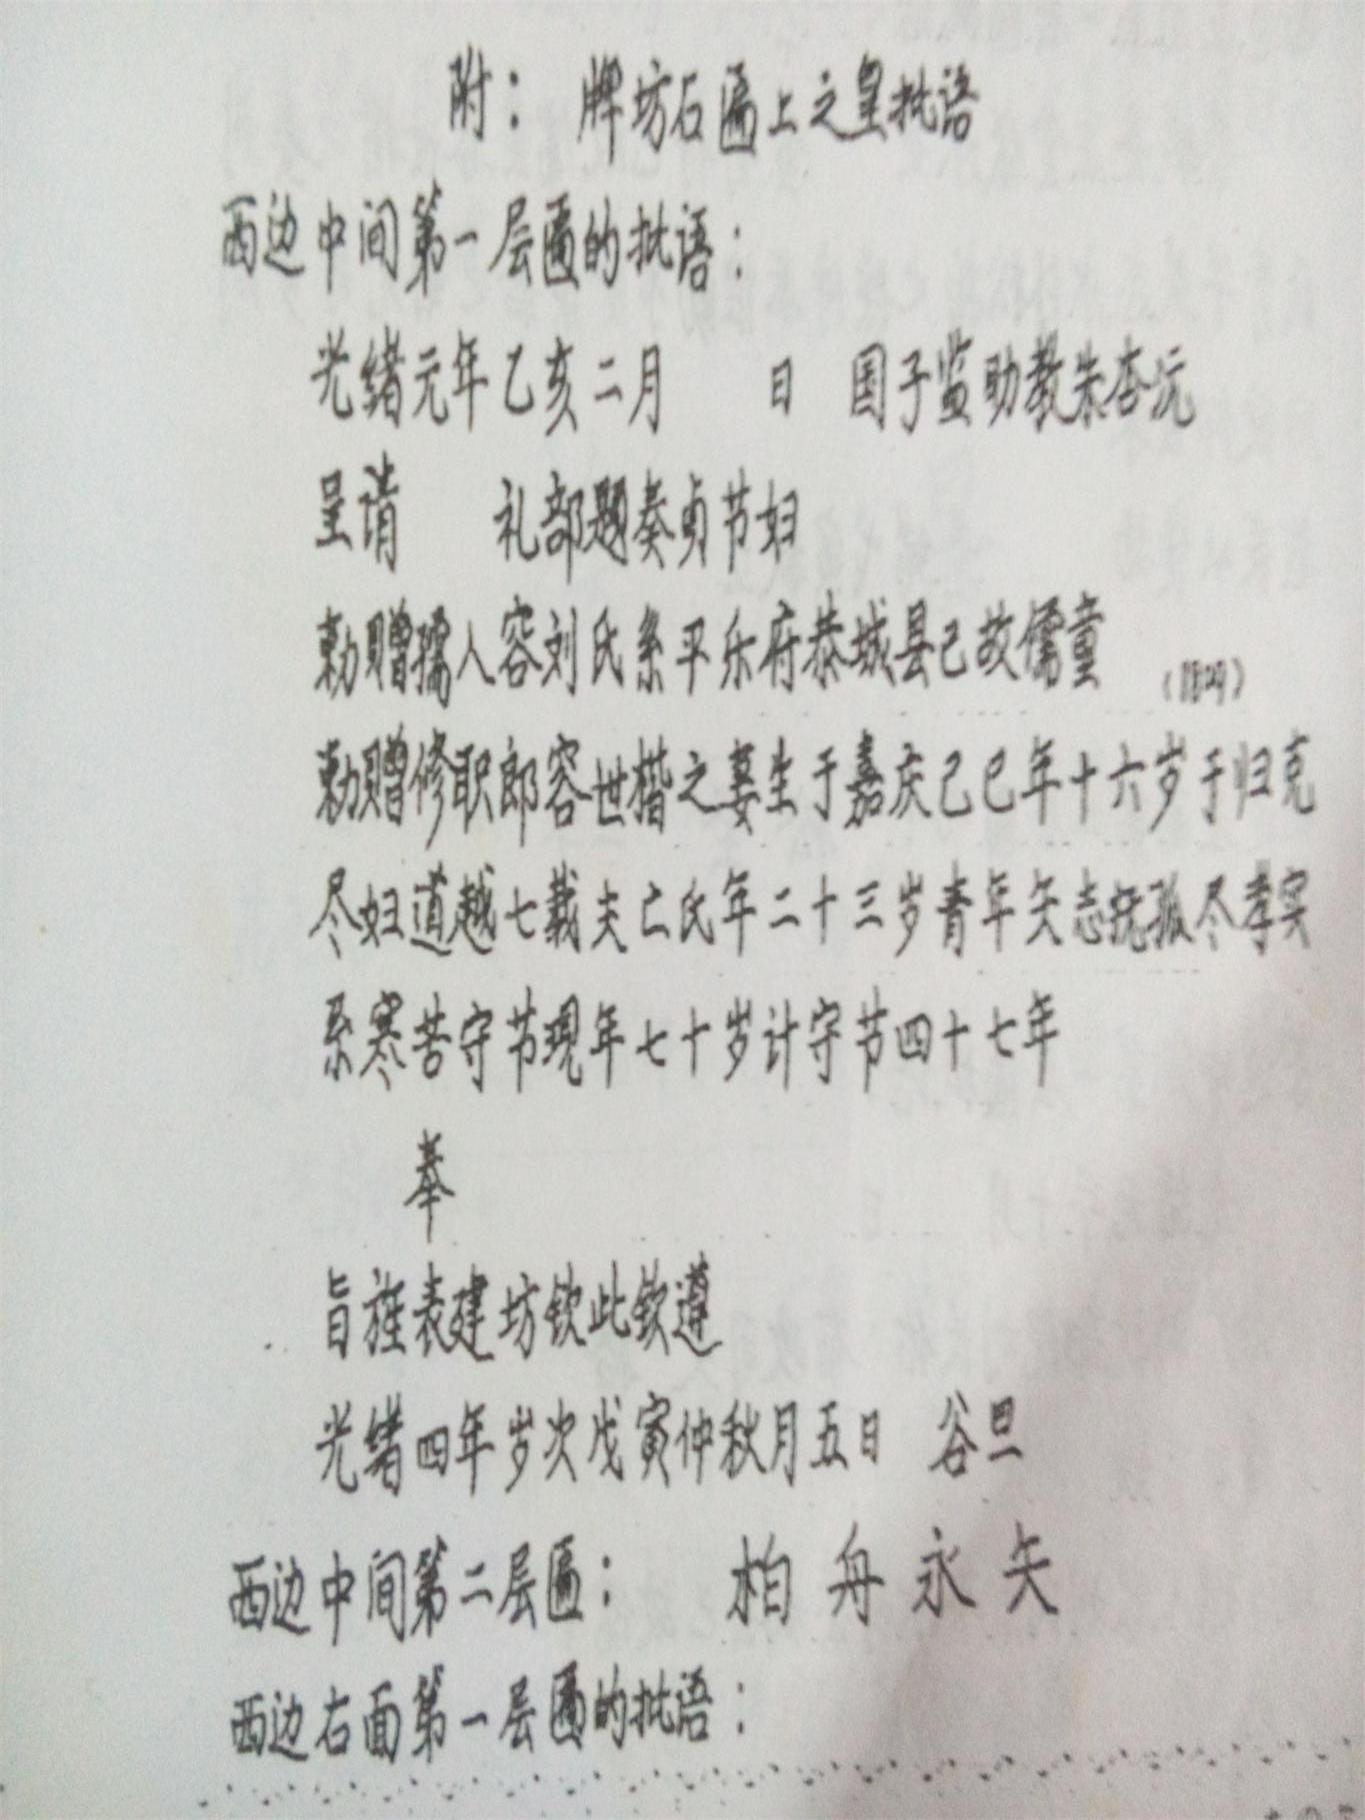 附： 牌坊石匾上之皇批语
西边中间第一层匾的批语：
光绪元年乙亥二月 日 国子监助教朱杏沅
呈请 礼部题奏贞节妇
勅赠孺人容刘氏系平乐府恭城县已故儒童
勅赠修职郎容世楷之妻生于嘉庆己巳年十六岁于归克
尽妇道越七载夫亡氏年二十三岁青年矢志抚孤尽孝实
系寒苦守节现年七十岁计守节四十七年
奉
旨旌表建坊钦此钦遵
光绪四年岁次戊寅仲秋月五日 谷旦
西边中间第二层匾： 柏舟永矢
西边右面第一层匾的批语：